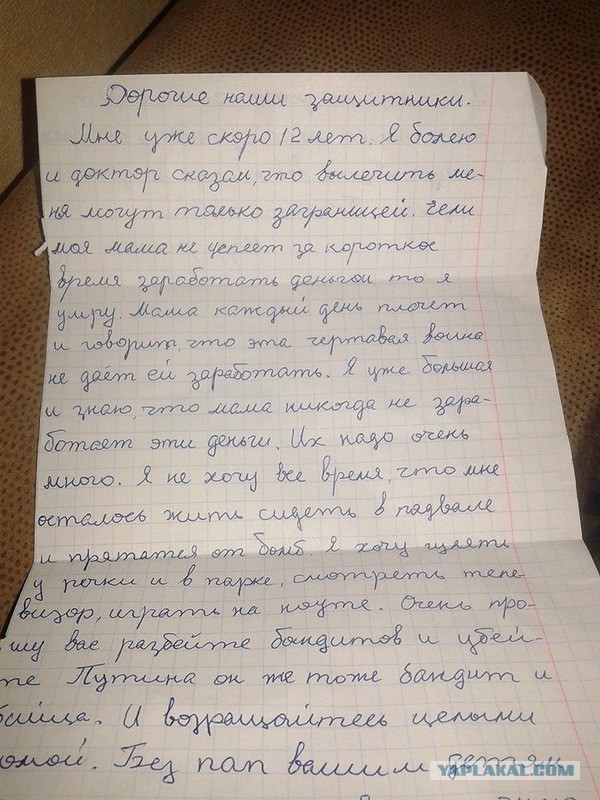 Дорогие наши защитники.
Мне уже скоро 12 лет. Я болею
и доктор сказал, что вылечить ме-
ня могут только заграницей. Если
моя мама не успеет за короткое
время заработать деньги то я
умру. Мама каждый день плачет
и говорит, что эта чертавая воина
не даёт ей заработать. Я уже большая
и знаю, что мама никогда не зара-
ботает эти деньги. Их надо очень
много. Я не хочу все время, что мне
осталось жить сидеть в падвале
и прятатся от бомб. Я хочу гулять
у речки и в парке, смотреть теле-
визор, играть на ноуте. Очень про-
шу вас разбейте бандитов и убей-
те Путина он же тоже бандит и
бийца. И возращайтесь целыми
омой. Без пап вашим детям
YAPLAKAL.COM